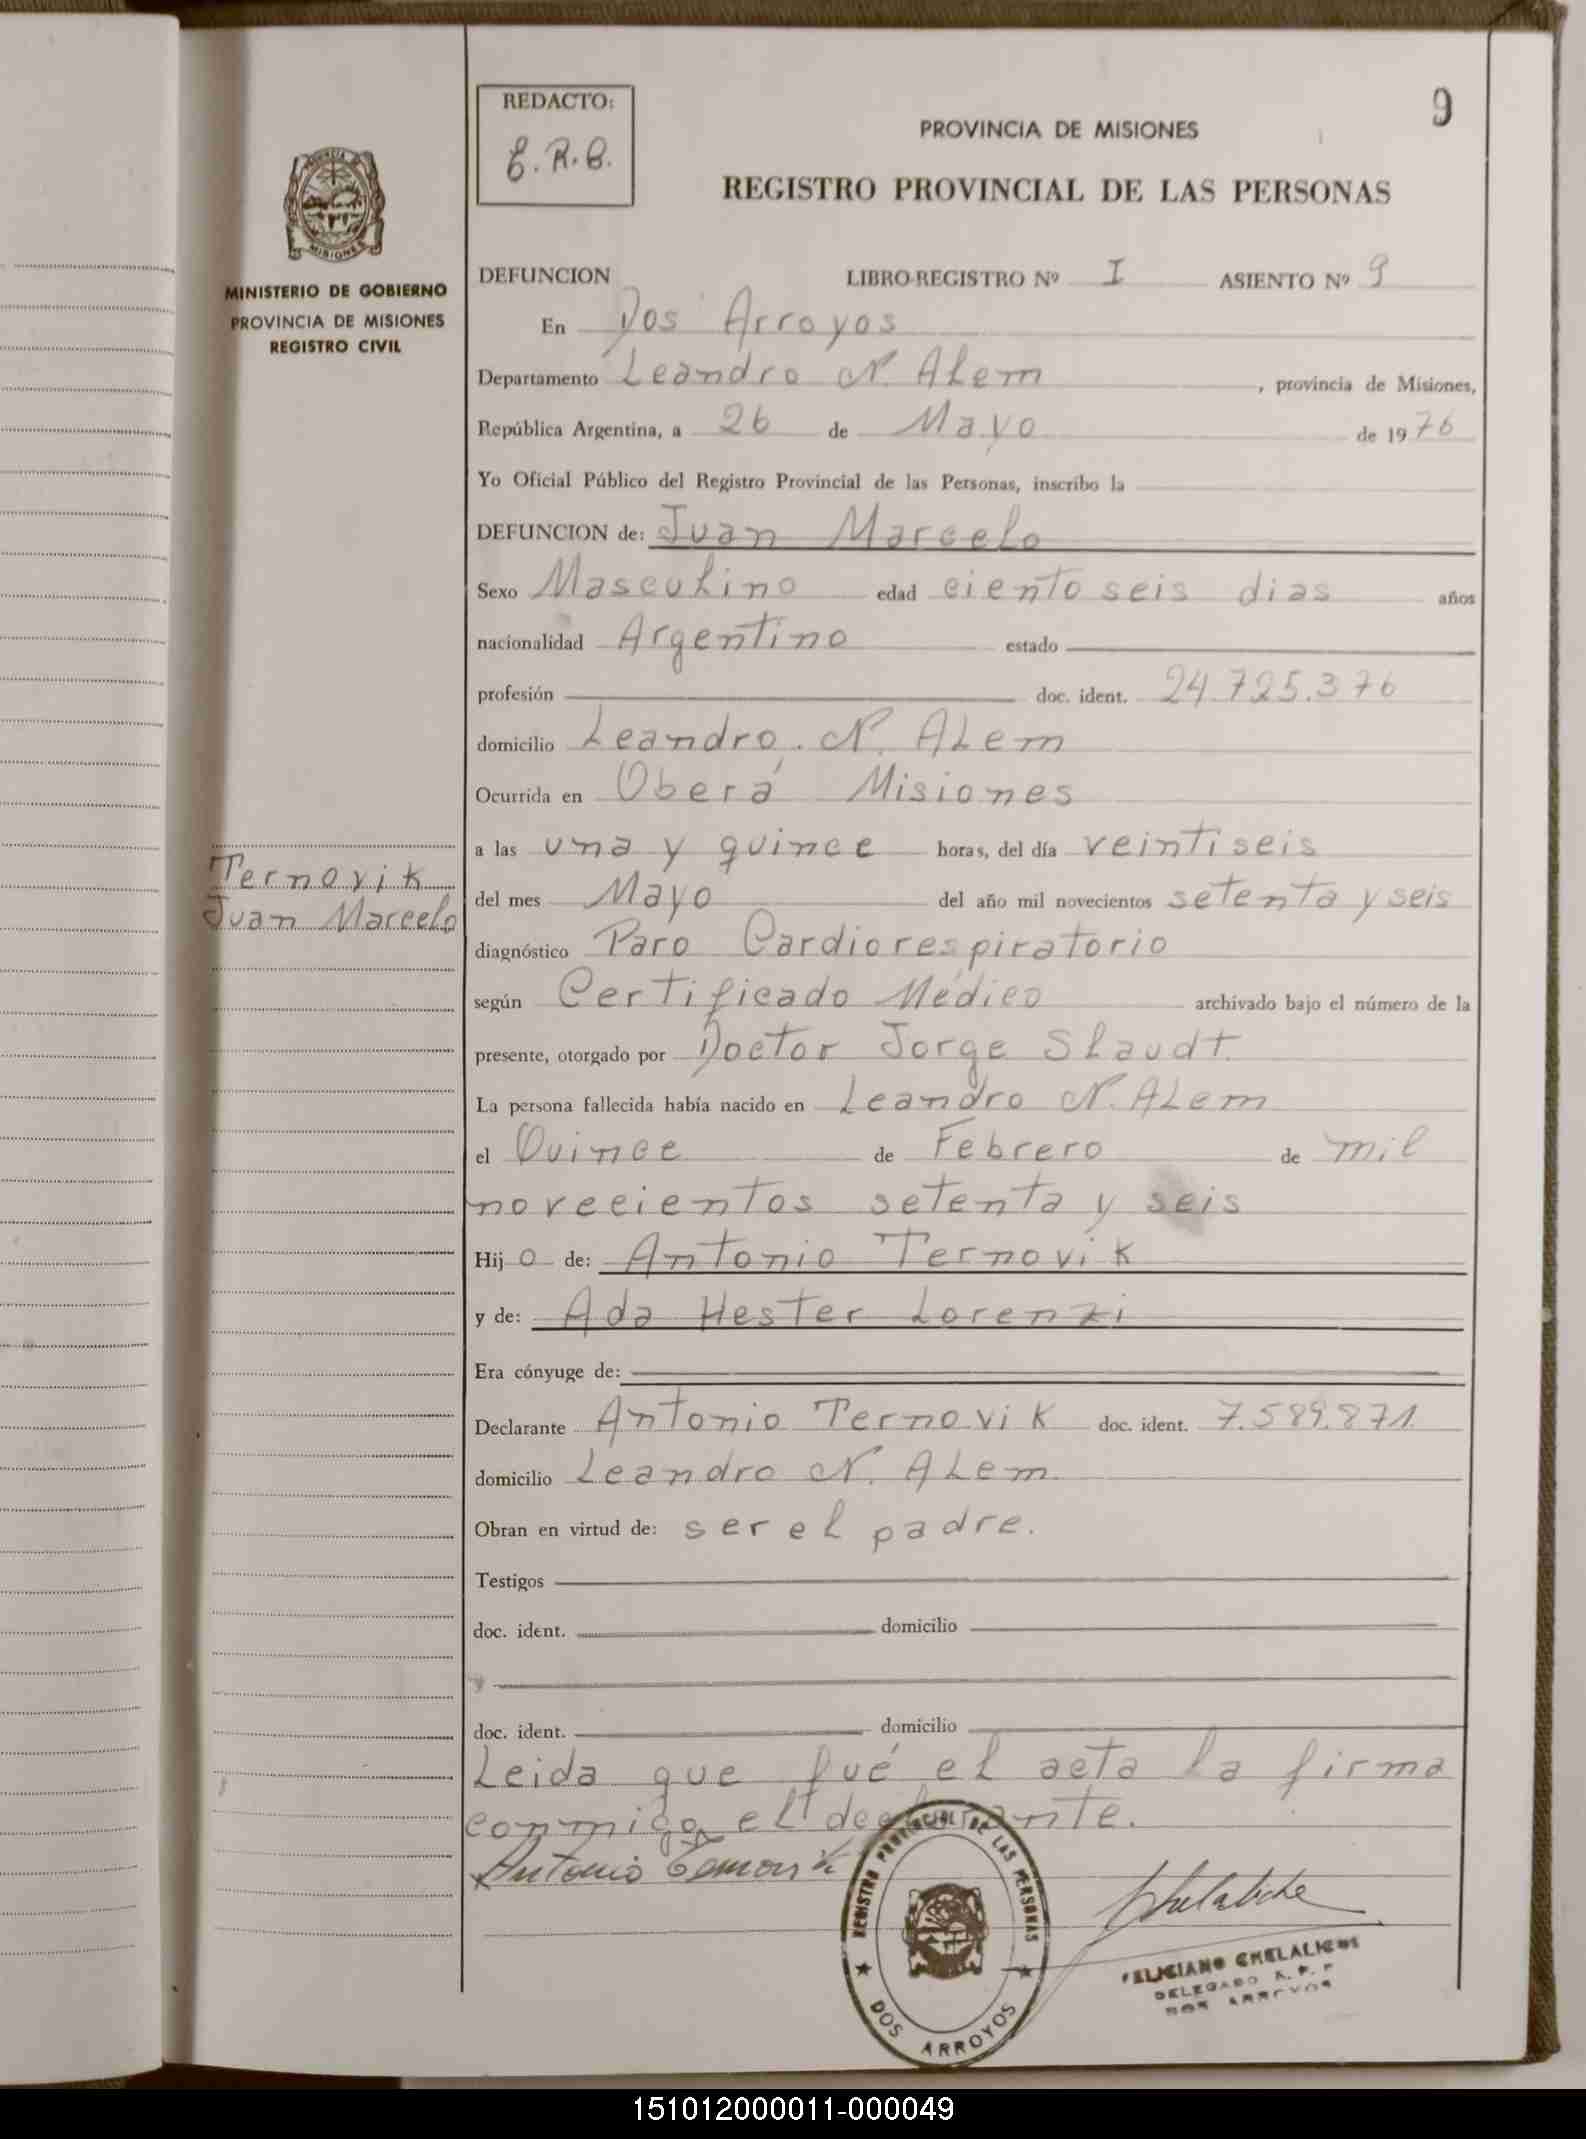 9
REDACTO:
E.R.B.
PROVINCIA DE MISIONES
REGISTRO PROVINCIAL DE LAS PERSONAS
MISIONES
MINISTERIO DE GOBIERNO
PROVINCIA DE MISIONES
REGISTRO CIVIL
DEFUNCION LIBRO-REGISTRO Nº I ASIENTO Nº 9
En Dos Arroyos
Departamento Leandro N. Alem , provincia de Misiones,
República Argentina, a 26 de Mayo de 1976
Yo Oficial Público del Registro Provincial de las Personas, inscribo la
DEFUNCION de: Juan Marcelo
Sexo Masculino edad ciento seis dias años
nacionalidad Argentino estado
profesión doc. ident. 24.725.376
domicilio Leandro. N. Alem
Ocurrida en Oberá Misiones
a las una y quince horas, del día veintiseis
Ternovik
Juan Marcelo
del mes Mayo del año mil novecientos setenta y seis
diagnóstico Paro Cardiorespiratorio
según Certificado Médico archivado bajo el número de la
presente, otorgado por Doctor Jorge Slaudt.
La persona fallecida había nacido en Leandro N. Alem
el Quince de Febrero de mil
novecientos setenta y seis
Hij o de: Antonio Ternovik
y de: Ada Hester Lorenzi
Era cónyuge de:
Declarante Antonio Ternovik doc. ident. 7.589.871.
domicilio Leandro N. Alem.
Obran en virtud de: ser el padre.
Testigos
doc. ident. domicilio
y
doc. ident. domicilio
Leida que fué el acta la firma
conmigo el declarante.
Antonio Ternovik
REGISTRO PROVINCIAL DE LAS PERSONAS
DOS ARROYOS
FELICIANO CHELALICHE
DELEGADO R. P. P
DOS ARROYOS
151012000011-000049